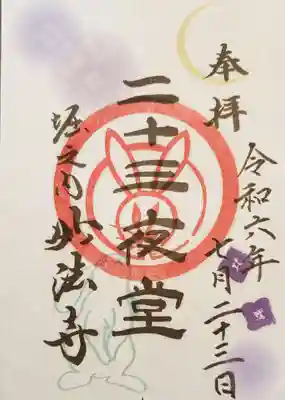 奉拝
令和六年
七月二十三日
二十三夜堂
堀之内妙法寺